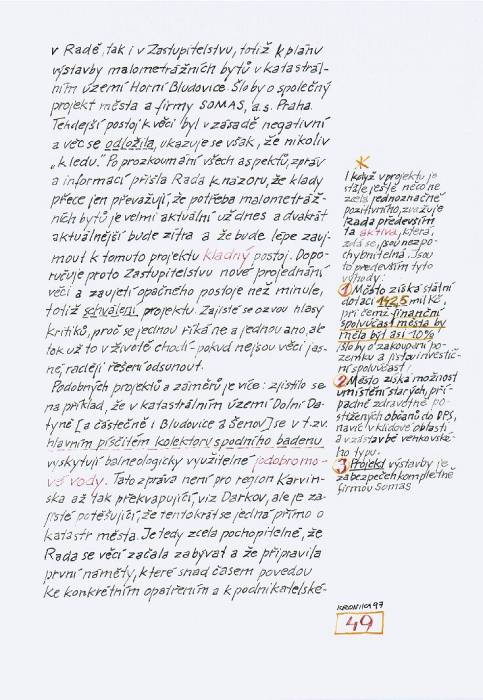 v Radě, tak i v Zastupitelstvu, totiž k plánu
výstavby malometrážních bytů v katastrál-
ním území Horní Bludovice. Šlo by o společný
projekt města a firmy SOMAS, a.s. Praha.
Tehdejší postoj k věci byl v zásadě negativní
a věc se odložila, ukazuje se však, že nikoliv
„k ledu.“ Po prozkoumání všech aspektů, zpráv
a informací přišla Rada k názoru, že klady
přece jen převažují, že potřeba malometráž-
ních bytů je velmi aktuální už dnes a dvakrát
aktuálnější bude zítra a že bude lépe zauj-
mout k tomuto projektu kladný postoj. Dopo-
ručuje proto Zastupitelstvu nové projednání
věci a zaujetí opačného postoje než minule,
totiž schválení projektu. Zajisté se ozvou hlasy
kritiků, proč se jednou říká ne a jednou ano, ale
tok už to v životě chodí - pokud nejsou věci jas-
né, raději řešení odsunout.
Podobných projektů a záměrů je více: zjistilo se
na příklad, že v katastrálním území Dolní Da-
tyně [a částečně i Bludovice a Šenov] se v t.zv.
hlavním písčitém kolektoru spodního badenu
vyskytují balneologicky využitelné jodobromo-
vé vody. Tato zpráva není pro region Karvin-
ska až tak překvapující, viz Darkov, ale je za-
jisté potěšující, že tentokrát se jedná přímo o
katastr města. Je tedy zcela pochopitelné, že
Rada se věcí začala zabývat a že připravila
první náměty, které snad časem povedou
ke konkrétním opatřením a k podnikatelské-
*
I když v projektu je
stále ještě něco ne
zcela jednoznačně
pozitivního, zvažuje
Rada především
ta aktiva, která,
zdá se, jsou nezpo-
chybnitelná. Jsou
to především tyto
výhody:
1 Město získá státní
dotaci 142,5 mil Kč,
při čemž finanční
spoluúčast města by
měla být asi 10%
šlo by o zakoupení po-
zemku a jistou investič-
ní spoluúčast
2 Město získá možnost
umístění starých, pří-
padně zdravotně po-
stižených občanů do DPS,
navíc v klidové oblasti
a v zástavbě venkovské-
ho typu.
3 Projekt výstavby je
zabezpečen kompletně
firmou Somas
KRONIKA 97
49